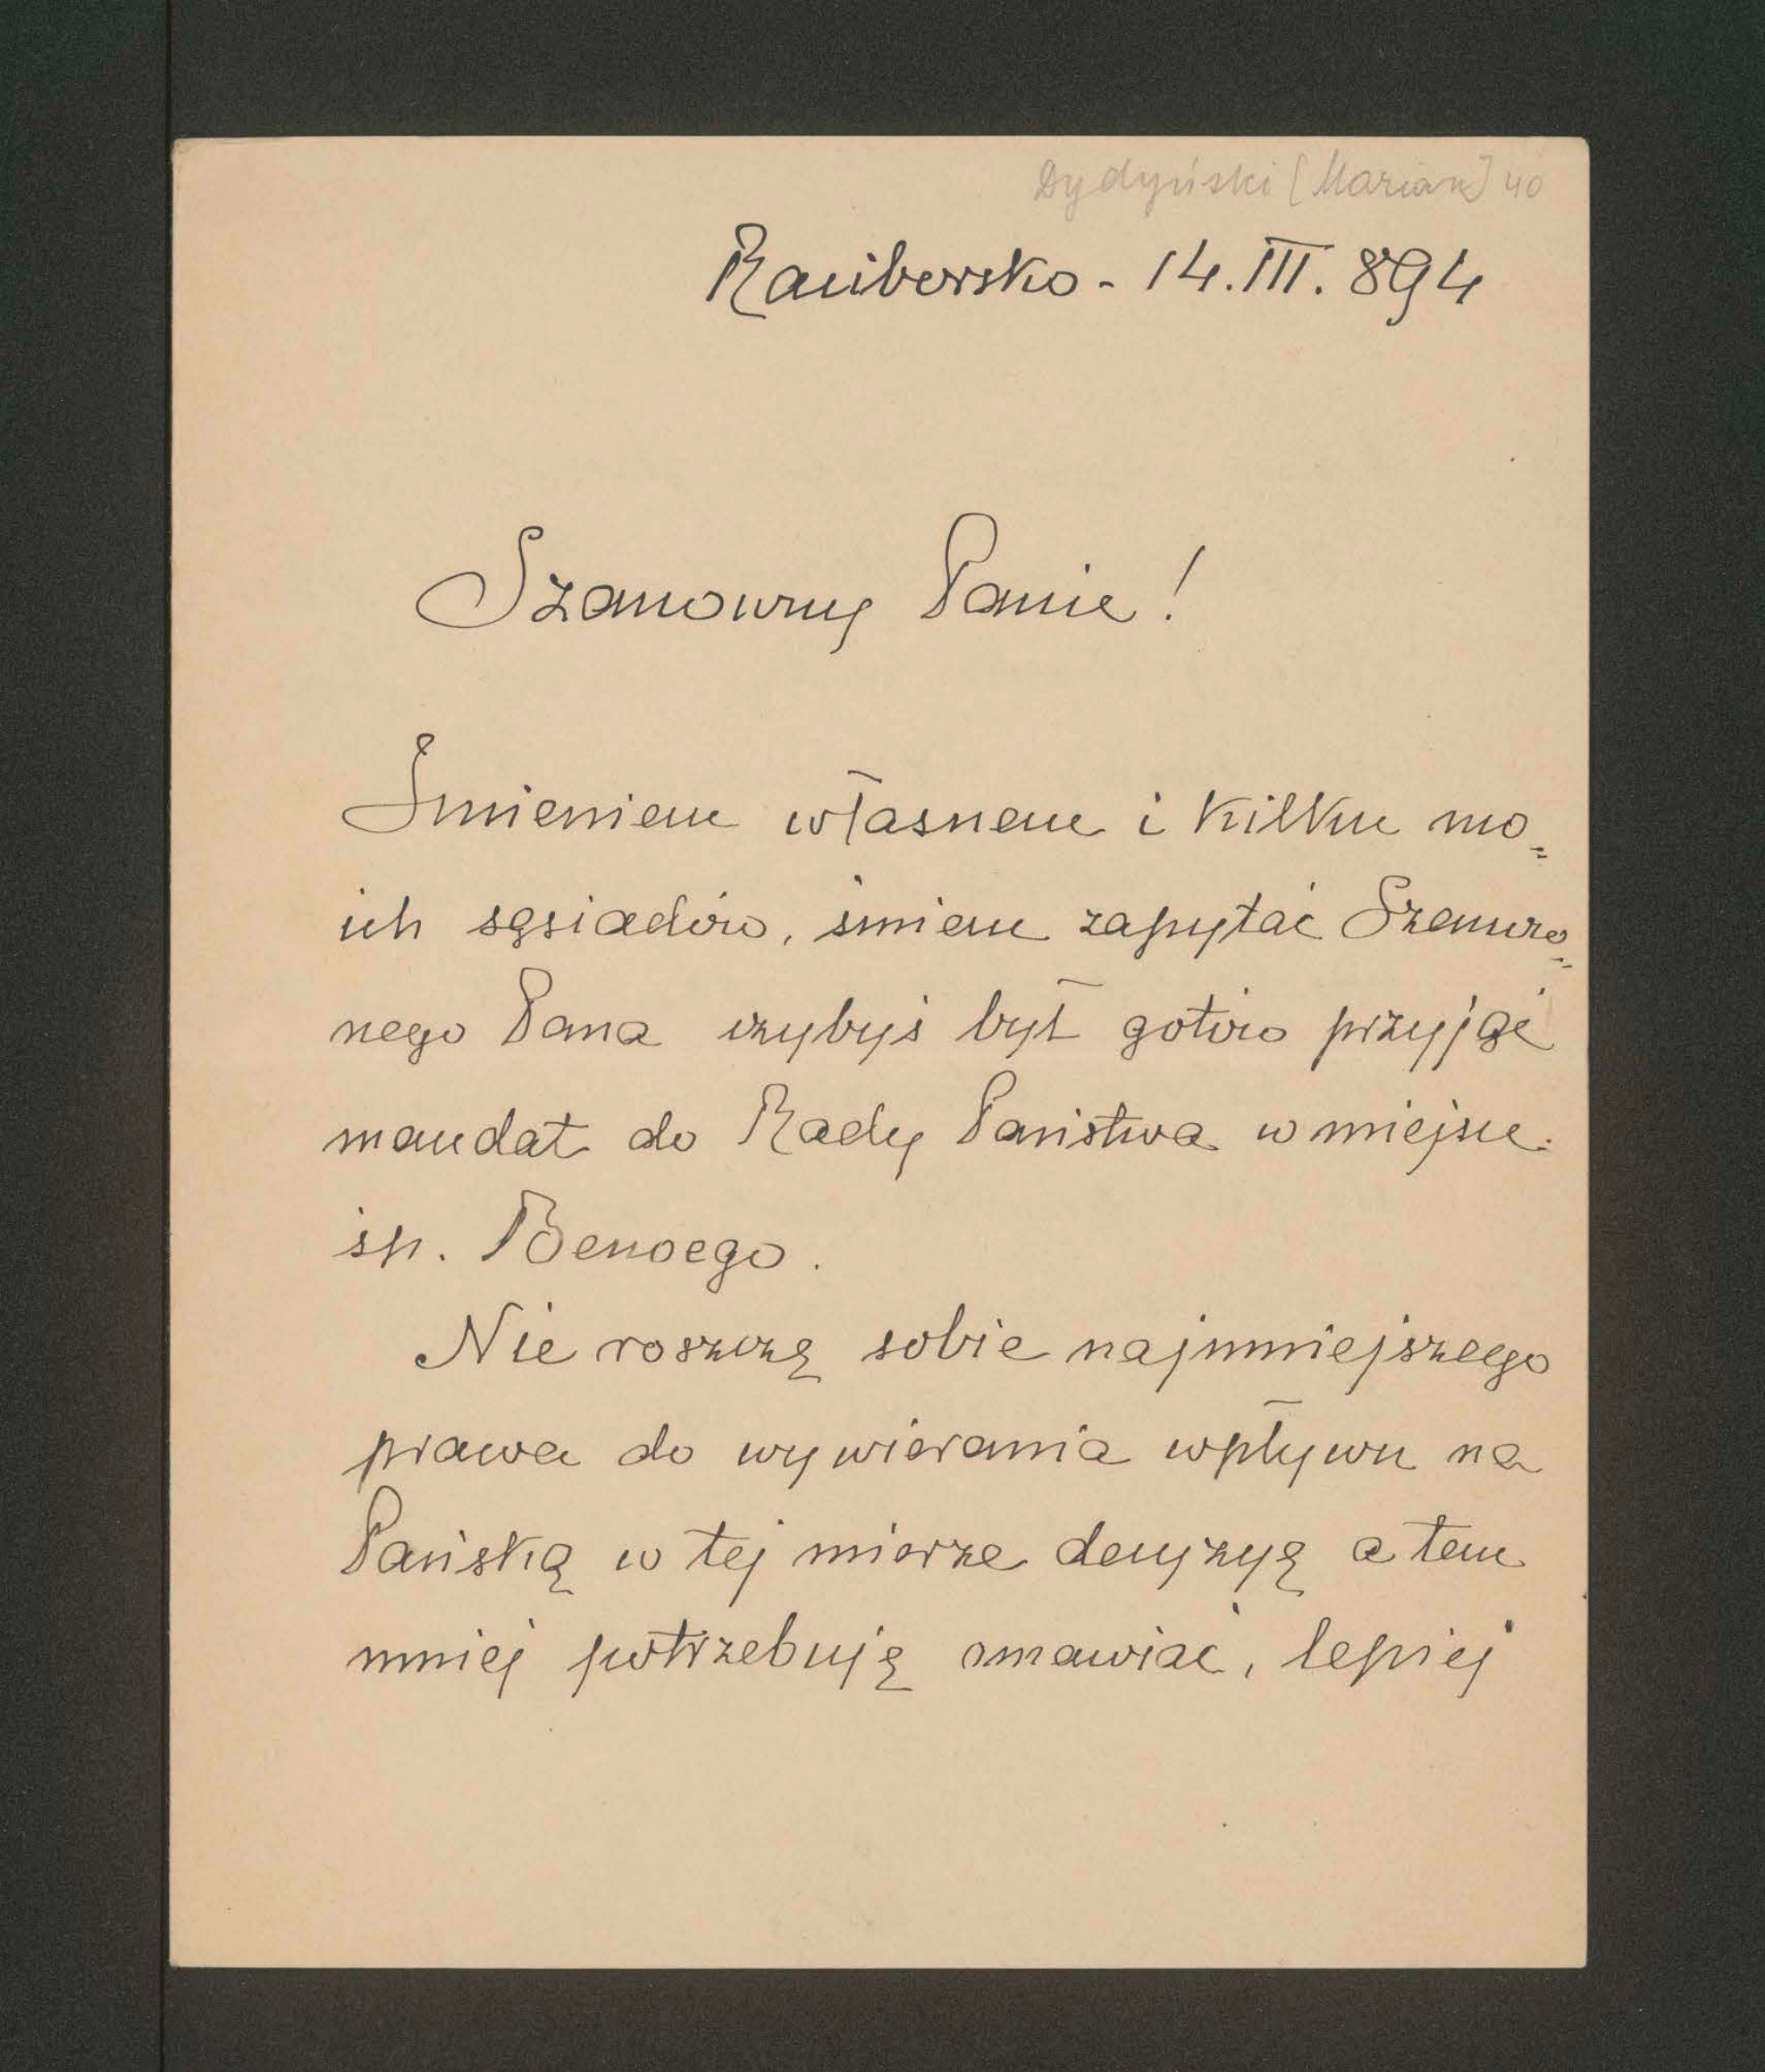 Dydyński [Marian] 40
Racibersko - 14. III. 894
Szanowny Panie!
Imieniem własnem i kilku mo=
ich sąsiadów, śmiem zapytać Szanow=
nego Pana czybyś był gotów przyjąć
mandat do Rady Państwa w miejsce
śp. Benoego.
Nie roszczę sobie najmniejszego
prawa do wywierania wpływu na
Pańską w tej mierze decyzyę a tem
mniej potrzebuję omawiać, lepiej